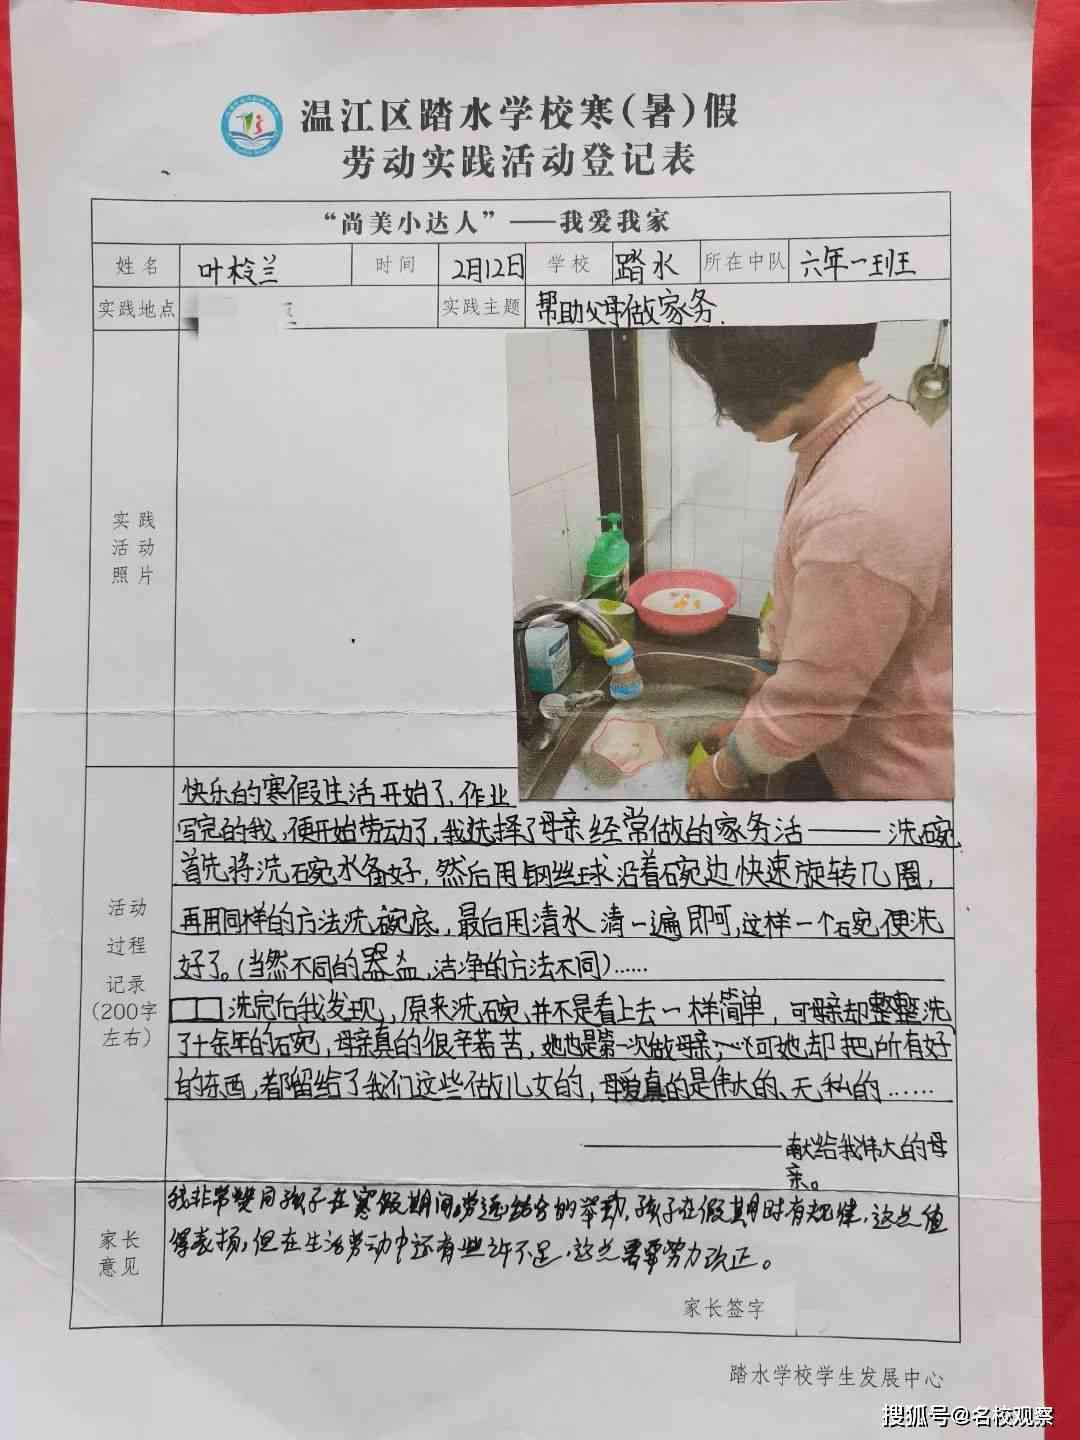 温江区踏水学校寒(暑)假
劳动实践活动登记表
“尚美小达人”——我爱我家
姓名 叶棱兰 时间 2月12日 学校 踏水 所在中队 六年一班
实践地点 实践主题 帮助父母做家务.
实践
活动
照片
快乐的寒假生活开始了,作业
写完的我,便开始劳动了,我选择了母亲经常做的家务活——洗碗
首先将洗碗水备好,然后用钢丝球沿着碗边快速旋转几圈,
再用同样的方法洗碗底,最后用清水清一遍即可,这样一个碗便洗
好了。(当然不同的器皿,洁净的方法不同)……
洗完后我发现,原来洗碗并不是看上去一样简单,可母亲却整整洗
了十余年的碗,母亲真的很辛苦,她也是第一次做母亲,可她却把所有好
的东西,都留给了我们这些做儿女的,母爱真的是伟大的、无私的……
——献给我伟大的母
亲。
活动
过程
记录
(200字
左右)
我非常赞同孩子在寒假期间劳逸结合的举动,孩子在假期时有规律,这点值
得表扬,但在生活劳动中还有些许不足,这点需要努力改正。
家长
意见
家长签字
踏水学校学生发展中心
搜狐号@名校观察